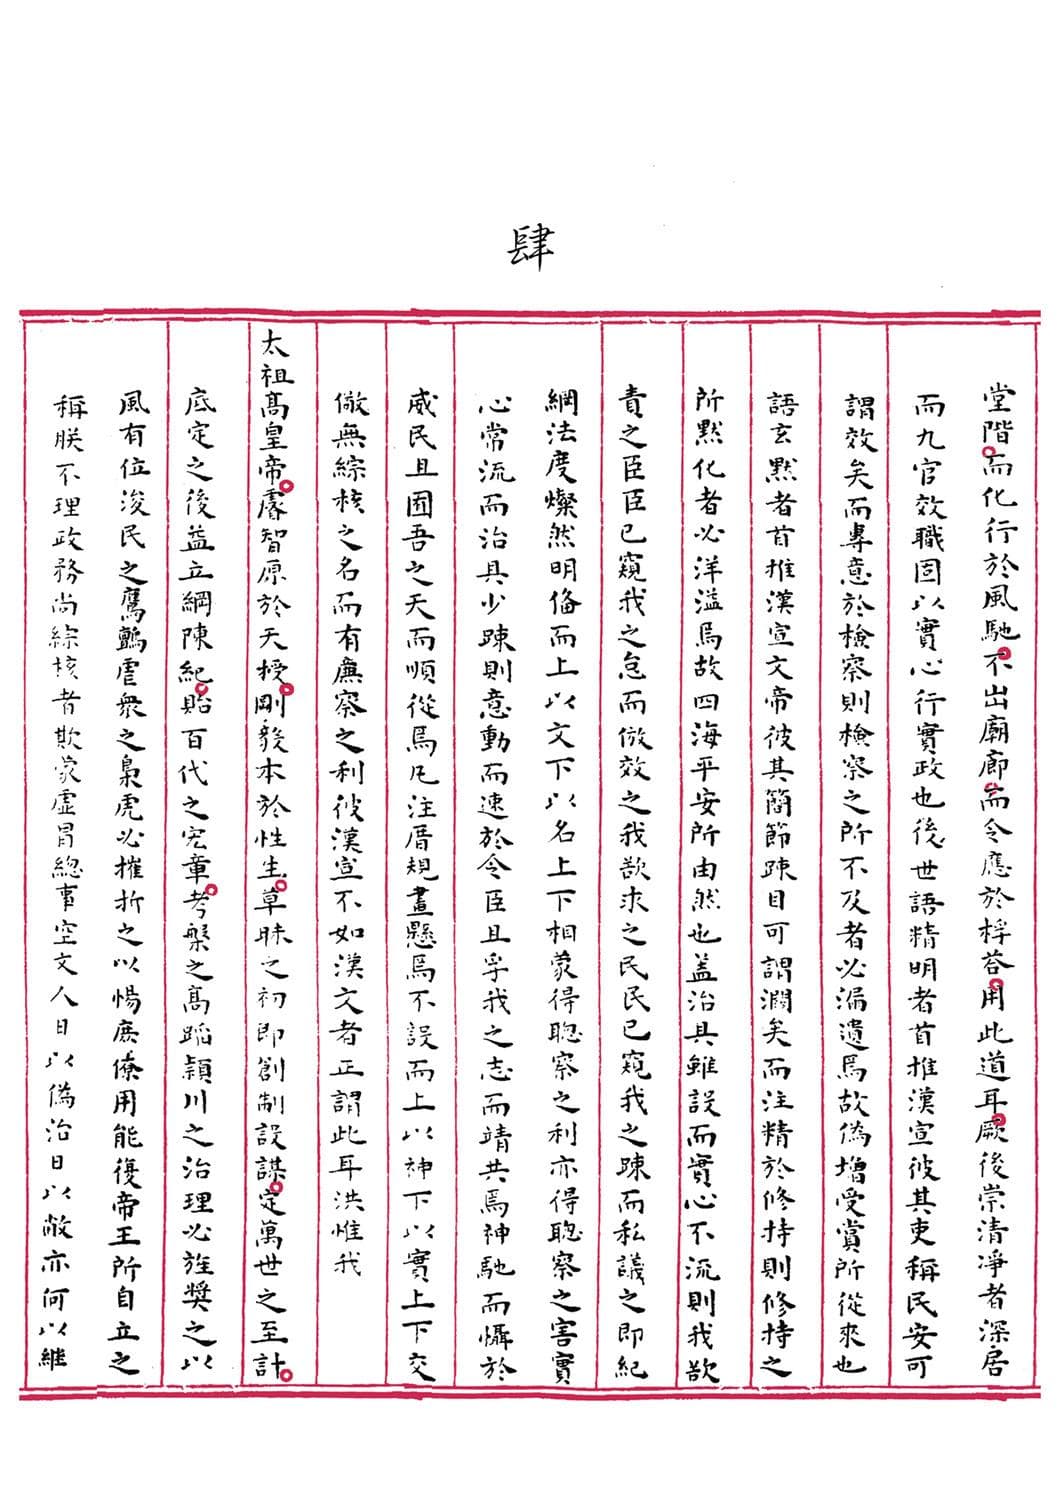 肆
堂階而化行於風馳不出廟廊而令應於桴荅用此道耳厥後崇清淨者深居
而九官效職固以實心行實政也後世語精明者首推漢宣彼其吏稱民安可
謂效矣而專意於檢察則檢察之所不及者必漏遺焉故偽增受賞所從來也
語玄默者首推漢宣文帝彼其簡節踈目可謂濶矣而注精於修持則修持之
所默化者必洋溢焉故四海平安所由然也盖治具雖設而實心不流則我欲
責之臣臣已窺我之怠而倣效之我欲求之民民已窺我之踈而私議之即紀
綱法度燦然明俻而上以文下以名上下相蒙得聦察之利亦得聦察之害實
心常流而治具少踈則意動而速於令臣且孚我之志而靖共焉神馳而懾於
威民且囿吾之天而順從焉凡注厝規畫懸焉不設而上以神下以實上下交
儆無綜核之名而有廉察之利彼漢宣不如漢文者正謂此耳洪惟我
太祖髙皇帝睿智原於天授剛毅本於性生草昧之初即創制設謀定萬世之至計
底定之後益立綱陳紀貽百代之宏章考槃之髙蹈潁川之治理必旌奬之以
風有位浚民之鷹鸇虐衆之梟虎必摧折之以惕庶僚用能復帝王所自立之
稱朕不理政務尚綜核者欺蒙虛冒總事空文人日以偽治日以敝亦何以継